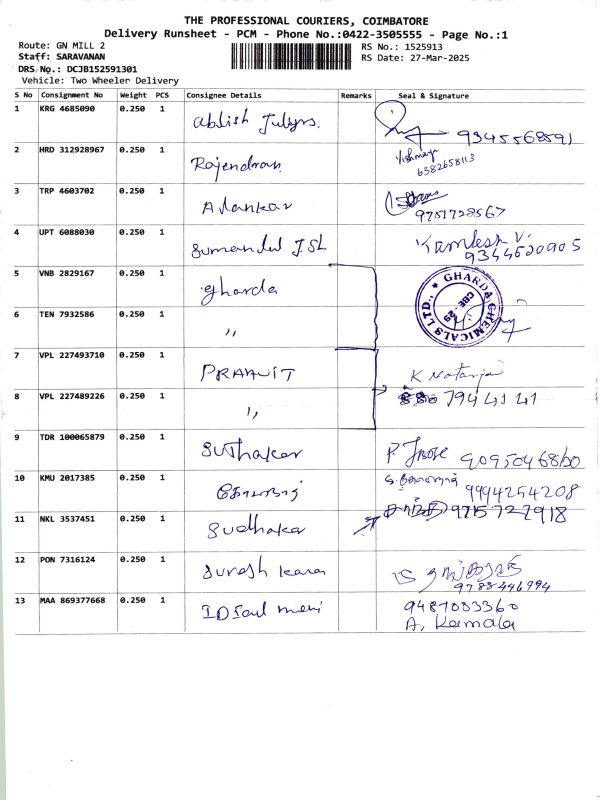 THE PROFESSIONAL COURIERS, COIMBATORE
Delivery Runsheet - PCM - Phone No.:0422-3505555 - Page No.:1
Route: GN MILL 2
RS No.: 1525913
Staff: SARAVANAN
RS Date: 27-Mar-2025
DRS No.: DCJB152591301
Vehicle: Two Wheeler Delivery
S No Consignment No Weight PCS Consignee Details Remarks Seal & Signature
1 KRG 4685090 0.250 1
9345568591
2 HRD 312928967 0.250 1 Rajendran
6382658113
3 TRP 4603702 0.250 1 Alankar
9751728567
4 UPT 6088030 0.250 1 Kamlesh V.
9344520905
5 VNB 2829167 0.250 1 Gharda
GHARDA CHEMICALS LTD., CBE - 29
6 TEN 7932586 0.250 1 ,,
7 VPL 227493710 0.250 1 K Nataraja
8 VPL 227489226 0.250 1 ,, 794 41 41
9 TDR 100065879 0.250 1 Suthakar 9095046860
10 KMU 2017385 0.250 1
9994254208
11 NKL 3537451 0.250 1 Sudhakar 9715727918
12 PON 7316124 0.250 1 Suresh
9788446994
13 MAA 869377668 0.250 1
9487083360
A, Kamala